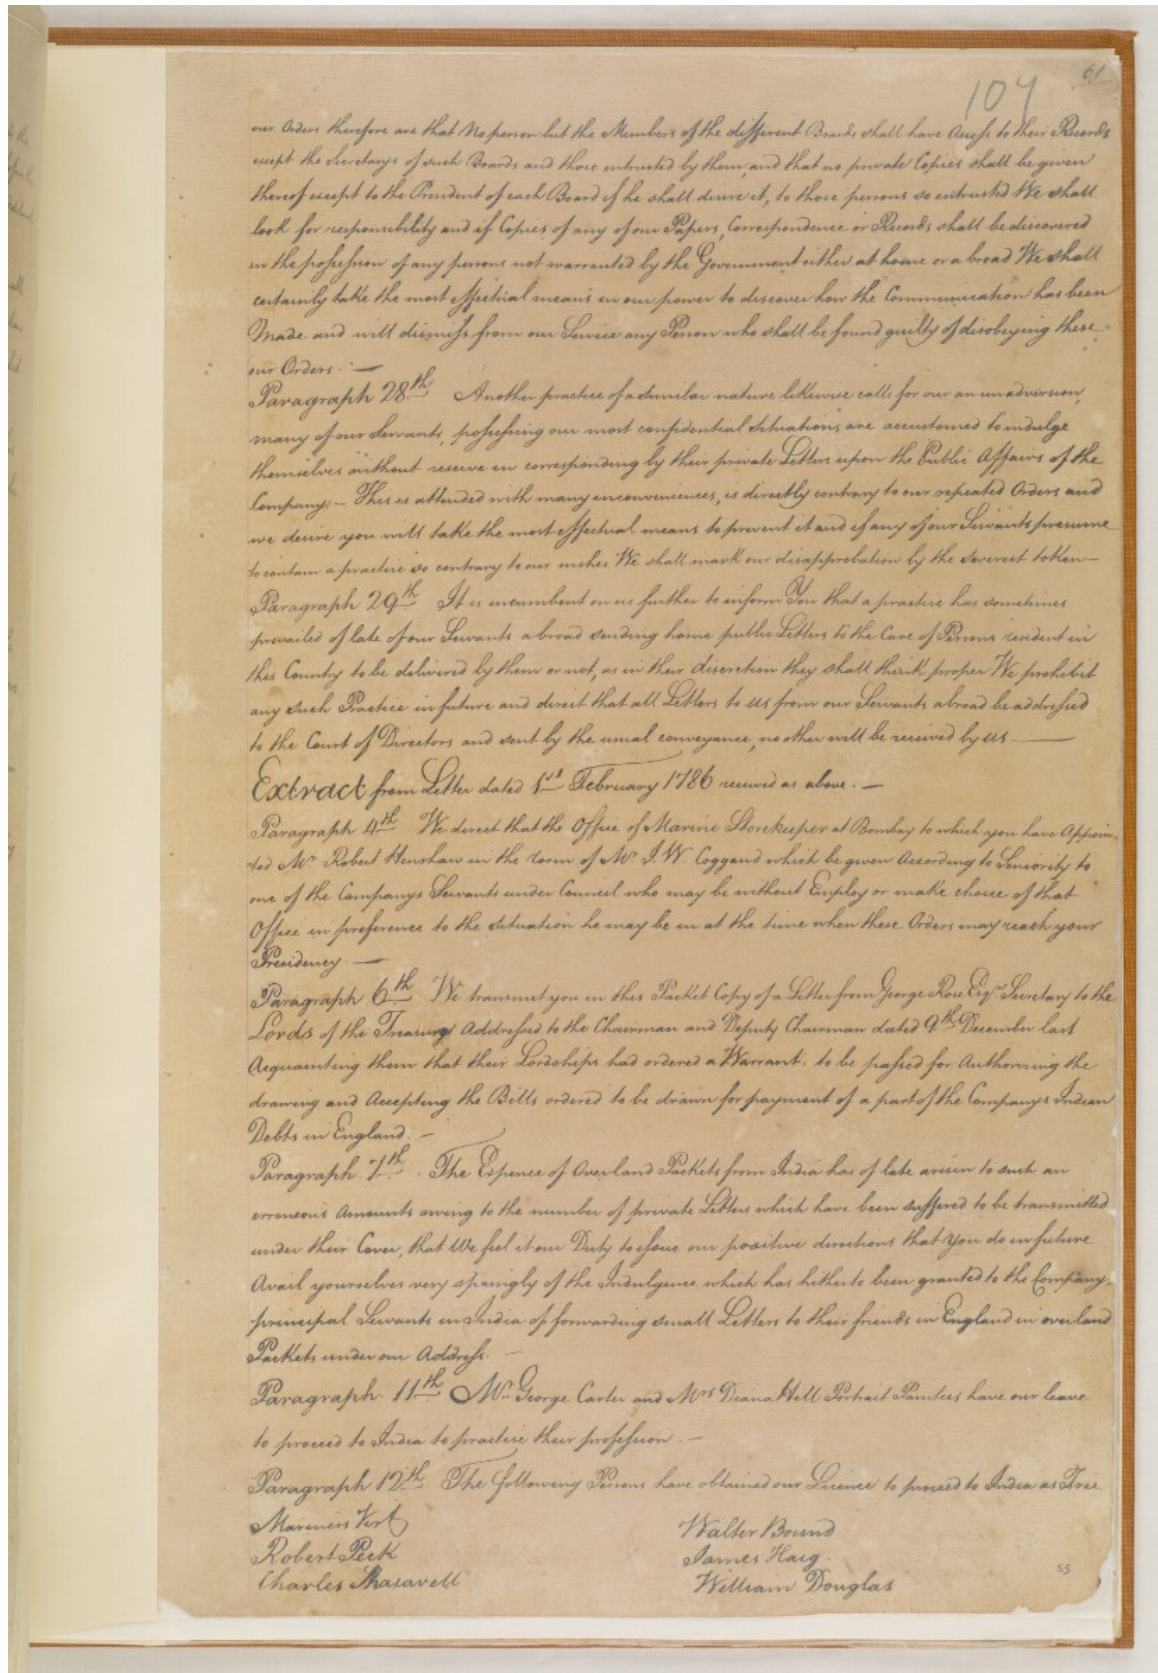 61
107
our Orders therefore are that No person but the Members of the different Boards shall have Access to their Records
except the Secretarys of such Boards and those intrusted by them, and that no private Copies shall be given
thereof except to the President of each Board if he shall desire it, to those persons so entrusted We shall
look for responsibility and if Copies of any of our Papers, Correspondence or Records shall be discovered
in the possession of any persons not warranted by the Government either at home or abroad We shall
certainly take the most effectual means in our power to discover how the Communication has been
Made and will dismiss from our Service any Person who shall be found guilty of disobeying these
our Orders. —
Paragraph 28th Another practice of a similar nature likewise calls for our animadversion,
many of our Servants, possessing our most confidential Situations are accustomed to indulge
themselves without reserve in corresponding by their private Letters upon the Public Affairs of the
Company; — This is attended with many inconveniences, is directly contrary to our repeated Orders and
we desire you will take the most effectual means to prevent it and if any of our Servants presume
to contain a practise so contrary to our wishes We shall mark our disapprobation by the severest token —
Paragraph 29th It is incumbent on us further to inform You that a practise has sometimes
prevailed of late of our Servants abroad sending home public Letters to the Care of Persons resident in
this Country to be delivered by them or not, as in their discretion they shall think proper We prohibit
any such Practice in future and direct that all Letters to us from our Servants abroad be addressed
to the Court of Directors and sent by the usual conveyance, no other will be received by us —
Extract from Letter dated 1st February 1786 received as above. —
Paragraph 4th We direct that the Office of Marine Storekeeper at Bombay to which you have Appoin-
ted Mr Robert Henshaw in the room of Mr J. W. Coggand which be given According to Seniority to
one of the Companys Servants under Council who may be without Employ or make choice of that
Office in preference to the situation he may be in at the time when these Orders may reach your
Presidency. —
Paragraph 6th We transmit you in this Packet Copy of a Letter from George Rose Esqr Secretary to the
Lords of the Treasury Addressed to the Chairman and Deputy Chairman dated 9th December last
Acquainting them that their Lordships had ordered a Warrant, to be passed for Authorising the
drawing and Accepting the Bills ordered to be drawn for payment of a part of the Companys Indian
Debts in England. —
Paragraph 7th. The Expence of Overland Packets from India has of late arisen to such an
erroneous Amounts owing to the number of private Letters which have been suffered to be transmitted
under their Cover, that We feel it our Duty to issue our positive directions that you do in future
Avail yourselves very sparingly of the Indulgence which has hitherto been granted to the Companys
principal Servants in India of forwarding small Letters to their friends in England in overland
Packets under our Address. —
Paragraph 11th Mr George Carter and Mrs Diana Hill Portrait Painters have our leave
to proceed to India to practise their profession. —
Paragraph 12th The following Persons have obtained our Licence to proceed to India as Free
Mariners Vizt
Walter Bound
Robert Peck
James Haig.
Charles
William Douglas
55